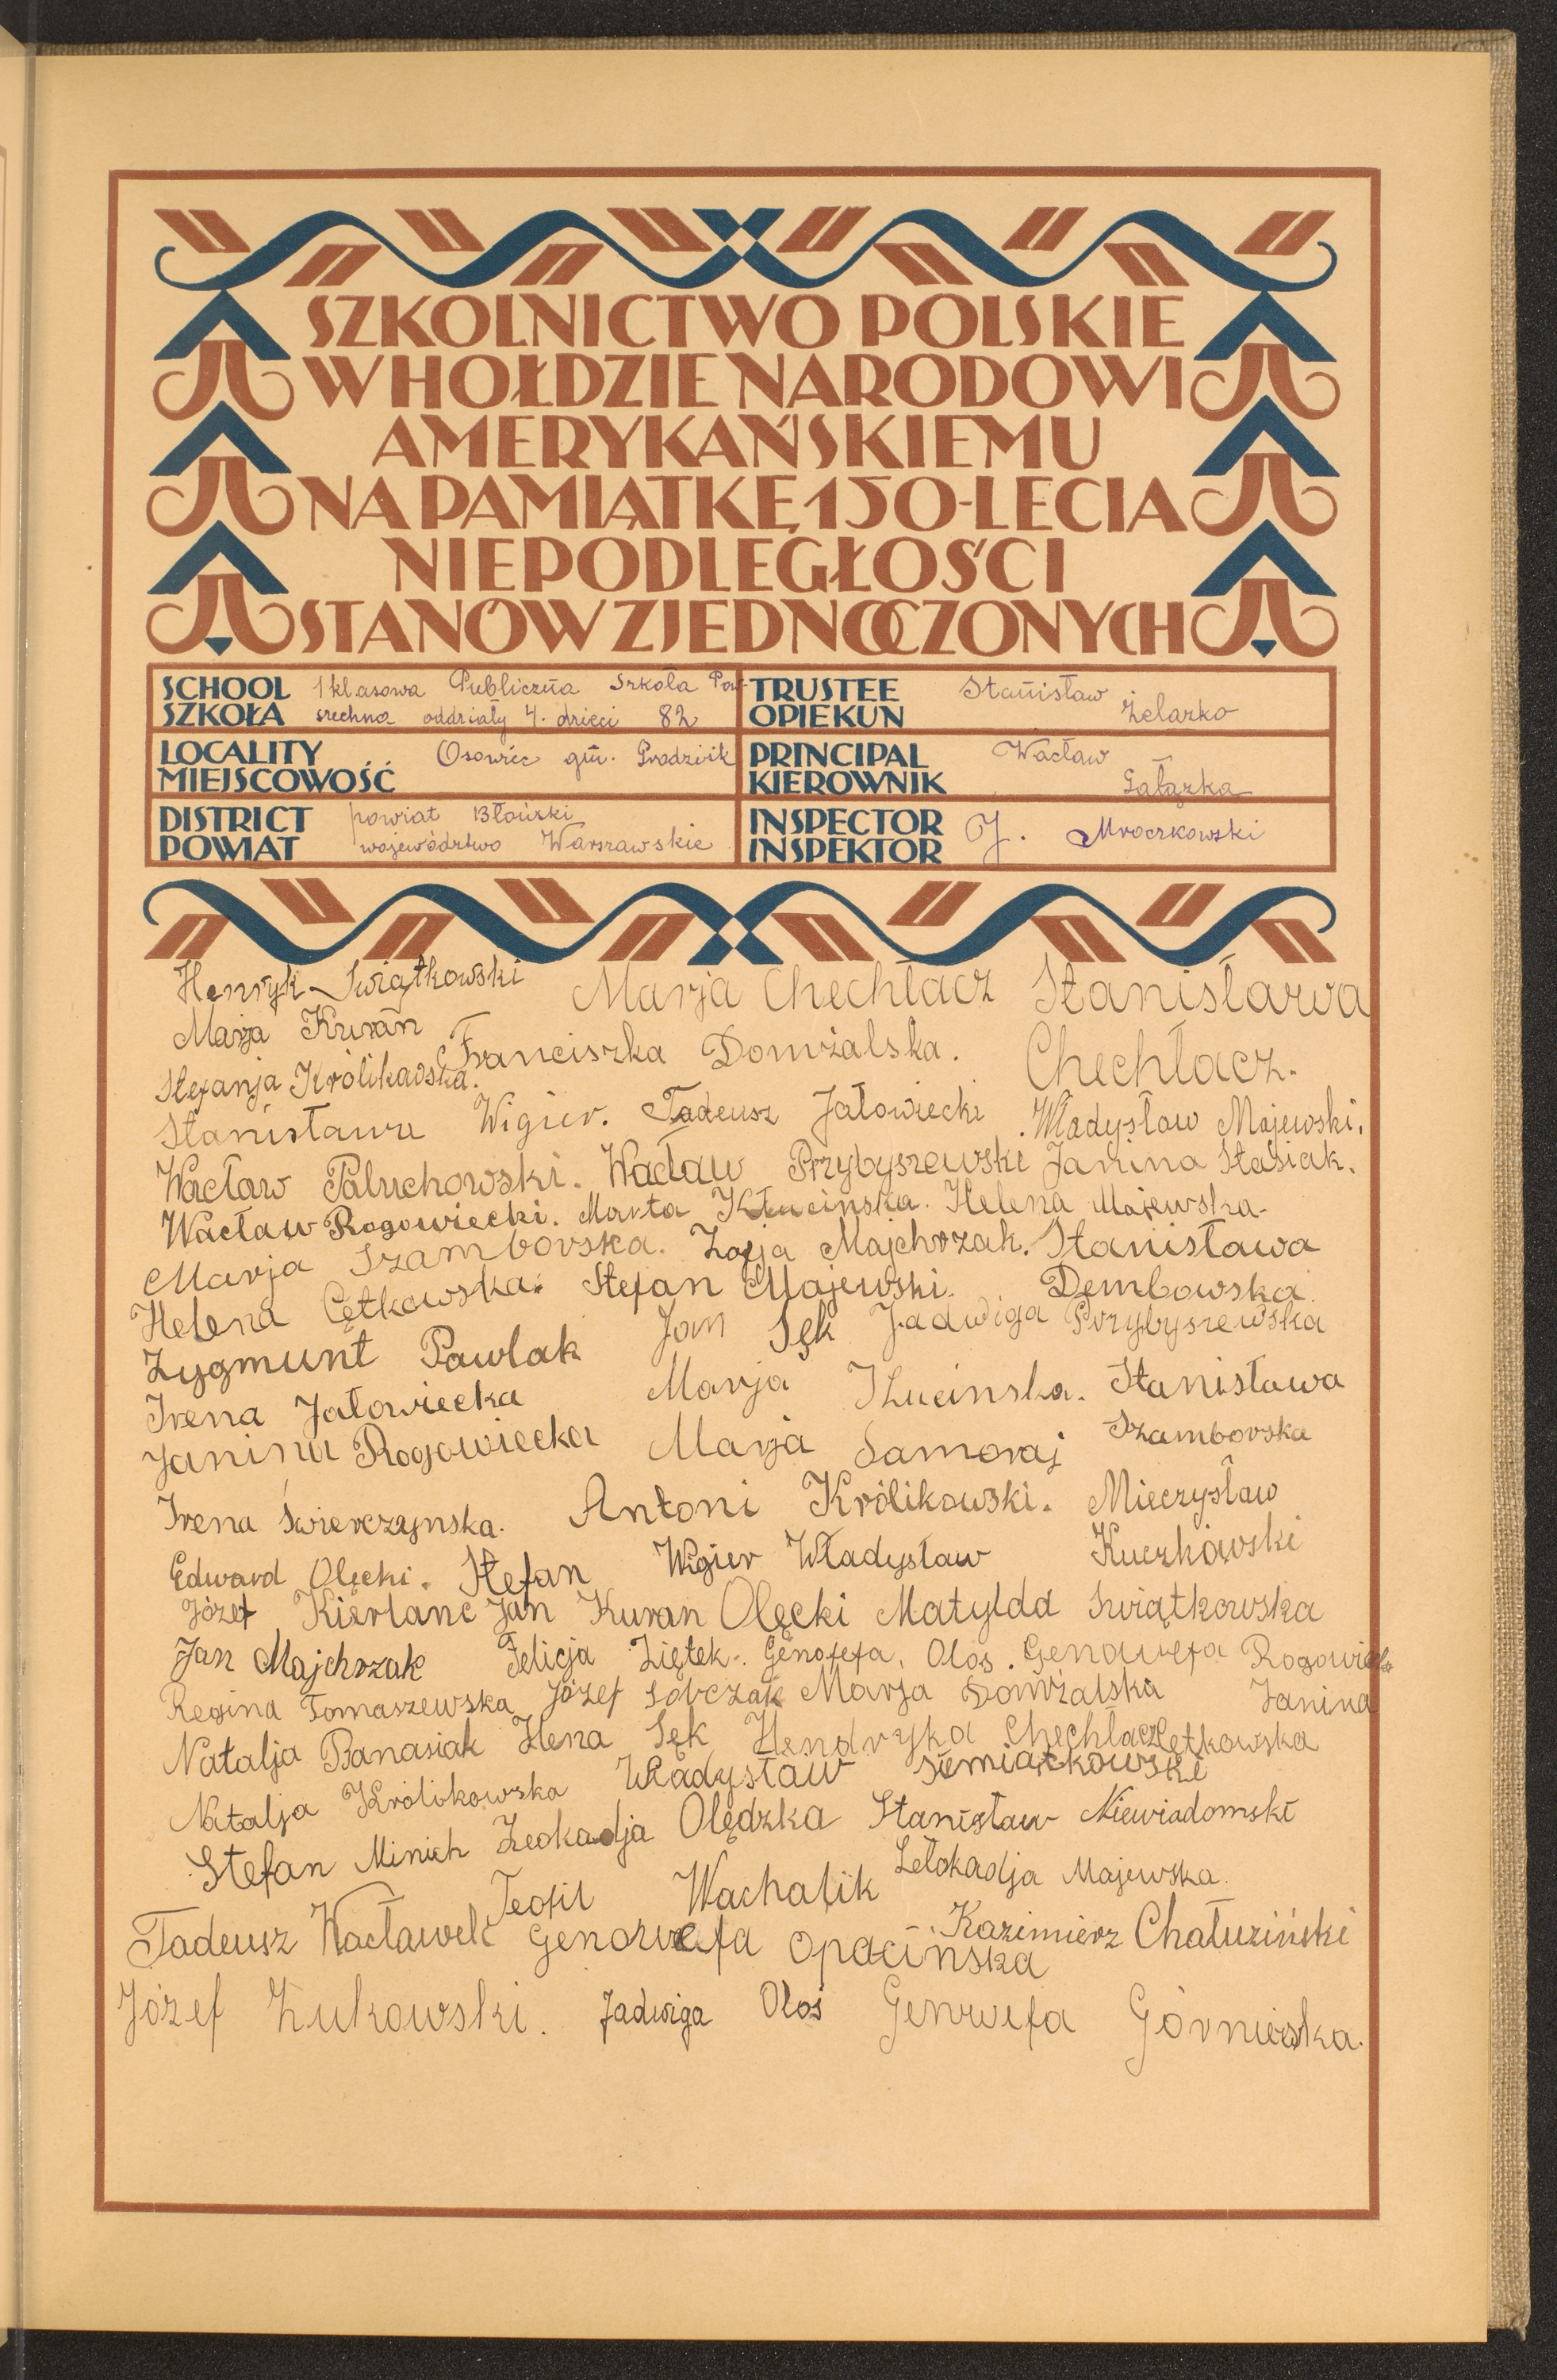 SZKOLNICTWO POLSKIE
W HOŁDZIE NARODOWI
AMERYKAŃSKIEMU
NA PAMIĄTKĘ 150-LECIA
NIEPODLEGŁOŚCI
STANÓW ZJEDNOCZONYCH
SCHOOL 1 klasowa Publiczna Szkoła Pow-
SZKOŁA szechna oddziały 4. dzieci 82
TRUSTEE Stanisław
OPIEKUN Żelazko
LOCALITY Osowiec gm.
MIEJSCOWOŚĆ
PRINCIPAL Wacław
KIEROWNIK Gałązka
DISTRICT powiat Błoński
POWIAT województwo Warszawskie
INSPECTOR J. Mroczkowski
INSPEKTOR
Henryk Swiątkowski Marja Chechłacz Stanisława
Marja Kuran Franciszka Domżalska. Chechłacz.
Stefanja Królikowska.
Stanisława Wigier. Tadeusz Jałowiecki Władysław Majewski.
Wacław Paluchowski. Wacław Przybyszewski Janina Stasiak.
Wacław Rogowiecki. Marta Kłucinska. Helena Majewska.
Marja Szamborska. Zofja Majchrzak. Stanisława
Helena Cętkowska. Stefan Majewski. Dembowska.
Zygmunt Pawlak Jan Sęk Jadwiga Przybyszewska
Irena Jałowiecka Marja Kłucinska. Stanisława
Janina Rogowiecka Marja Samoraj Szamborska
Irena Świerczynska. Antoni Królikowski. Mieczysław
Edward Olęcki. Stefan Wigier Władysław Kuczkowski
Józef Kierlanc Jan Kuran Olęcki Matylda Swiątkowska
Jan Majchrzak Felicja Ziętek. Genofefa, Olos. Genowefa Rogowiecka
Regina Tomaszewska Józef Sobczak Marja Domżalska Janina
Natalja Banasiak Hena Sęk Hendryka Chechłacz Cętkowska
Natalja Królikowska Władysław Siemiątkowski
Stefan Minich Leokadja Olędzka Stanisław Niewiadomski
Teofil Wachalik Lełokadja Majewska.
Tadeusz Wacławek Genowefa Opacinska Kazimierz Chałuziński
Józef Żukowski. Jadwiga Oloś Genwefa Górnieska.